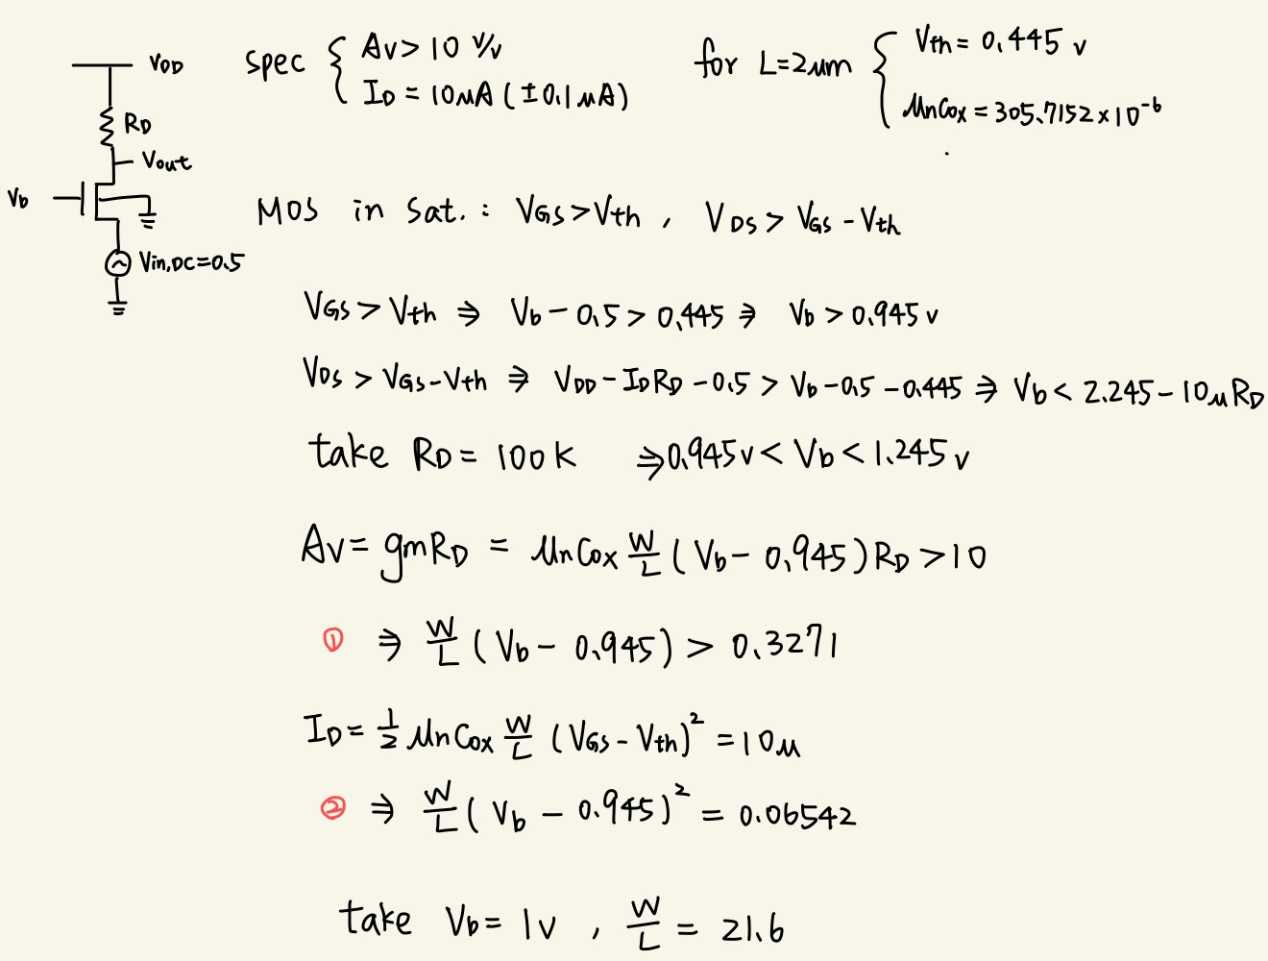 VDD
RD
Vout
Vb
Vin,DC=0.5
spec { Av > 10 V/v
ID = 10μA (±0.1μA)
for L=2μm { Vth = 0.445 v
μnCox = 305.7152×10^-6
MOS in sat. : VGS>Vth , VDS > VGS-Vth
VGS > Vth ⇒ Vb - 0.5 > 0.445 ⇒ Vb > 0.945 v
VDS > VGS-Vth ⇒ VDD-IDRD-0.5 > Vb-0.5-0.445 ⇒ Vb < 2.245-10μRD
take RD = 100K ⇒ 0.945v < Vb < 1.245 v
Av = gmRD = μnCox W/L (Vb - 0.945) RD > 10
① ⇒ W/L (Vb - 0.945) > 0.3271
ID = 1/2 μnCox W/L (VGS - Vth)^2 = 10μ
② ⇒ W/L (Vb - 0.945)^2 = 0.06542
take Vb = 1v , W/L = 21.6